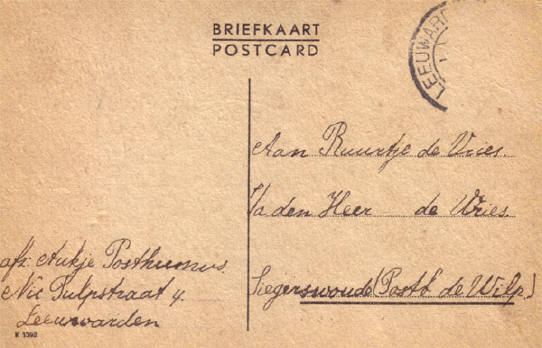 BRIEFKAART
POSTCARD
LEEUWARD
Aan Ruurtje de Vries.
V/a den Heer de Vries.
Siegerswoude (Post de Wilp)
afz. Aukje Posthumus.
Nic Pulpstraat 4.
Leeuwarden
K 1092